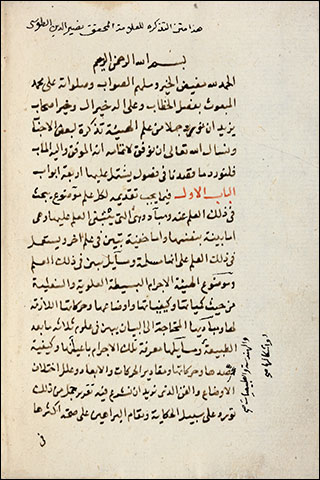 هذا متن التذكره للعلامة المحقق نصير الدين الطوسى
بسم الله الرحمن الرحيم
الحمد لله مفيض الخير وملهم الصواب وصلواته على محمد
المبعوث بفصل الخطاب وعلى اله خير ال وخير اصحاب
نريد ان نورد جملا من علم الهيئة تذكرة لبعض الاحباب
ونسال الله تعالى ان يوفق لاتمامه انه الموفق واليه الماب
فلنورد ما قصدنا فى فصول يشتمل عليها اربعة ابواب
الباب الاول فيما يجب تقديمه لكل علم موضوع يبحث
فى ذلك العلم عنه ومبادٍ وهى التى يبتنى العلم عليها وهى
اما بينة بنفسها واما خفية تبين فى علم اخر ويستعمل
فى ذلك العلم على انها مسلمة ومسايل يبين فى ذلك العلم
وموضوع الهيئة الاجرام البسيطة العلوية والسفلية
من حيث كمياتها وكيفياتها واوضاعها وحركاتها اللازمة
لها ومباديها المحتاجة الى البيان يبين فى علوم ثلاثة مابعد
الطبيعة ومسايلها معرفة تلك الاجرام باعيانها وكيفية
نضدها وحركاتها ومقادير الحركات والابعاد وعلل اختلاف
الاوضاع والفن الذى نريد ان نشرع فيه تقرير جمل من ذلك
نورده على سبيل الحكاية ويقام البراهين على صحة اكثرها
فى
والهندسة والطبيعيات